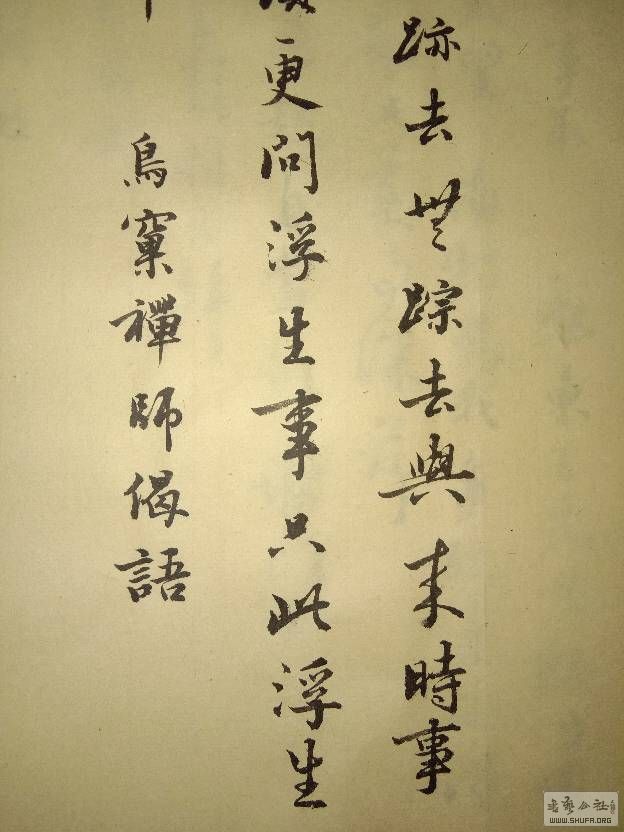 跡去無踪去與来時事
更問浮生事只此浮生
鳥窠禪師偈語
WWW.SHUFA.ORG